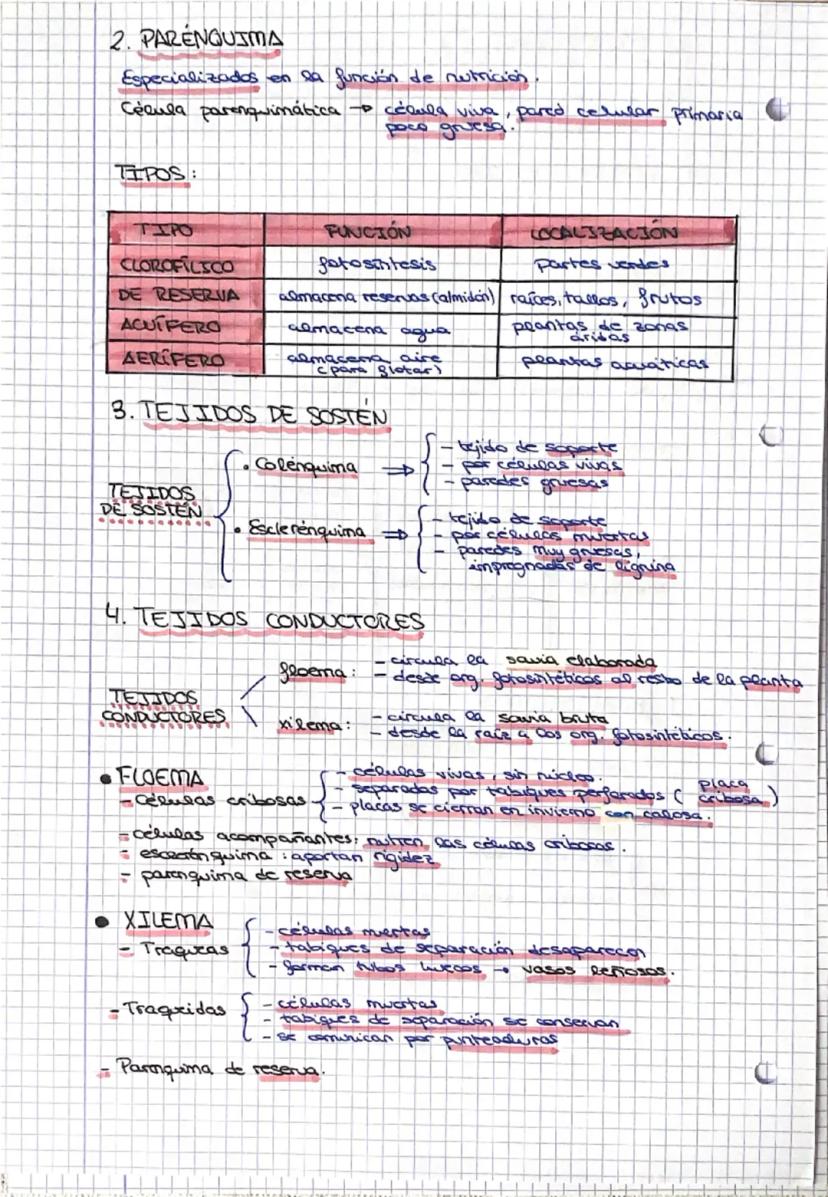 2. PARÉNQUIMA
Especializados en la función de nutrición.
Célula parenquimática → célula viva, pared celular primaria
poco gruesa.
TIPOS:
TIPO FUNCIÓN LOCALIZACIÓN
CLOROFÍLICO fotosíntesis partes verdes
DE RESERVA almacena reservas (almidón) raíces, tallos, frutos
ACUÍFERO almacena agua plantas de zonas
áridas
AERÍFERO almacena aire plantas acuáticas
(para flotar)
3. TEJIDOS DE SOSTÉN
TEJIDOS
DE SOSTÉN
• Colénquima ⇒
- tejido de soporte
- por células vivas
- paredes gruesas
• Esclerénquima ⇒
- tejido de soporte
- por células muertas
- paredes muy gruesas,
impregnadas de lignina
4. TEJIDOS CONDUCTORES
TEJIDOS
CONDUCTORES
floema: - circula la savia elaborada
- desde org. fotosintéticos al resto de la planta
xilema: - circula la savia bruta
- desde la raíz a los org. fotosintéticos.
• FLOEMA
- Células cribosas
- células vivas, sin núcleo.
- separadas por tabiques perforados (placa
cribosa)
- placas se cierran en invierno con calosa.
- células acompañantes: nutren las células cribosas.
- : aportan rigidez
- parenquima de reserva
• XILEMA
- Traqueas
- células muertas
- tabiques de separación desaparecen
- forman tubos huecos → vasos leñosos.
- Traqueidas
- células muertas
- tabiques de separación se conservan
- se comunican por punteaduras
- Parénquima de reserva.